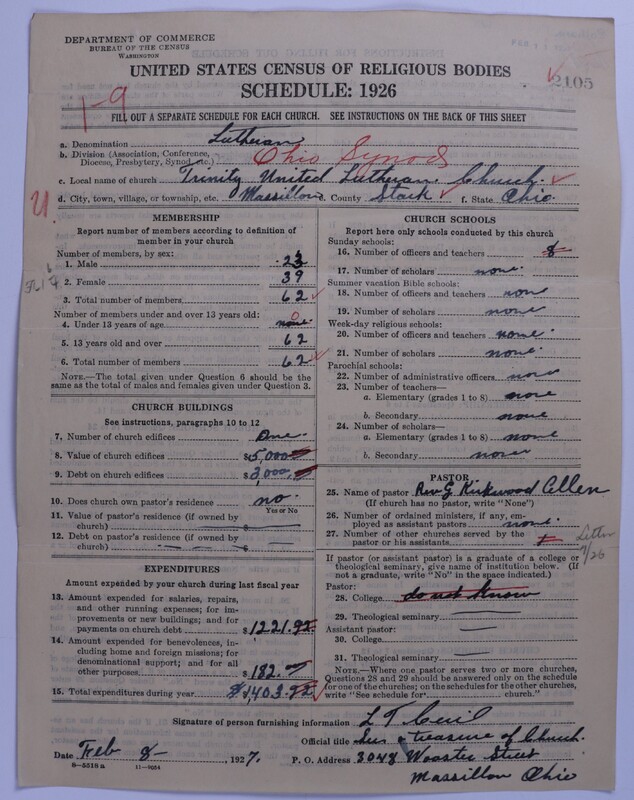 DEPARTMENT OF COMMERCE
BUREAU OF THE CENSUS
WASHINGTON
UNITED STATES CENSUS OF RELIGIOUS BODIES
2105
SCHEDULE: 1926
1-9
FILL OUT A SEPARATE SCHEDULE FOR EACH CHURCH. SEE INSTRUCTIONS ON THE BACK OF THIS SHEET
a. Denomination Lutheran
b. Division (Association, Conference, Diocese, Presbytery, Synod, etc.) Ohio Synod
c. Local name of church Trinity United Lutheran Church
d. City, town, village, or township, etc. Massillon e. County Stark f. State Ohio
U.
MEMBERSHIP
Report number of members according to definition of
member in your church
Number of members, by sex:
1. Male 23
2. Female 39
3. Total number of members 62
Number of members under and over 13 years old:
4. Under 13 years of age none 0
5. 13 years old and over 62
6. Total number of members 62
NOTE.—The total given under Question 6 should be
the same as the total of males and females given under Question 3.
CHURCH BUILDINGS
See instructions, paragraphs 10 to 12
7. Number of church edifices One
8. Value of church edifices $5,000
9. Debt on church edifices $3,000
10. Does church own pastor's residence no
Yes or No
11. Value of pastor's residence (if owned by
church) $
12. Debt on pastor's residence (if owned by
church) $
EXPENDITURES
Amount expended by your church during last fiscal year
13. Amount expended for salaries, repairs,
and other running expenses; for im-
provements or new buildings; and for
payments on church debt $1221.92
14. Amount expended for benevolences, in-
cluding home and foreign missions; for
denominational support; and for all
other purposes $182.
15. Total expenditures during year $1403.92
CHURCH SCHOOLS
Report here only schools conducted by this church
Sunday schools:
16. Number of officers and teachers 8
17. Number of scholars none
Summer vacation Bible schools:
18. Number of officers and teachers none
19. Number of scholars none
Week-day religious schools:
20. Number of officers and teachers none
21. Number of scholars none
Parochial schools:
22. Number of administrative officers none
23. Number of teachers—
a. Elementary (grades 1 to 8) none
b. Secondary none
24. Number of scholars—
a. Elementary (grades 1 to 8) none
b. Secondary none
PASTOR
25. Name of pastor Rev G Kirkwood Allen
(If church has no pastor, write "None")
26. Number of ordained ministers, if any, em-
ployed as assistant pastors none
27. Number of other churches served by the
pastor or his assistants
Letter
If pastor (or assistant pastor) is a graduate of a college or
theological seminary, give name of institution below. (If
not a graduate, write "No" in the space indicated.)
Pastor:
28. College do not Know
29. Theological seminary
Assistant pastor:
30. College
31. Theological seminary
NOTE.—Where one pastor serves two or more churches,
Questions 28 and 29 should be answered only on the schedule
for one of the churches; on the schedules for the other churches,
write "See schedule for church."
Signature of person furnishing information L T
Official title Sec & treasure of Church
Date Feb 8- , 1927. P. O. Address 3048 Wooster Street
Massillon Ohio
8—5318a 11—9034